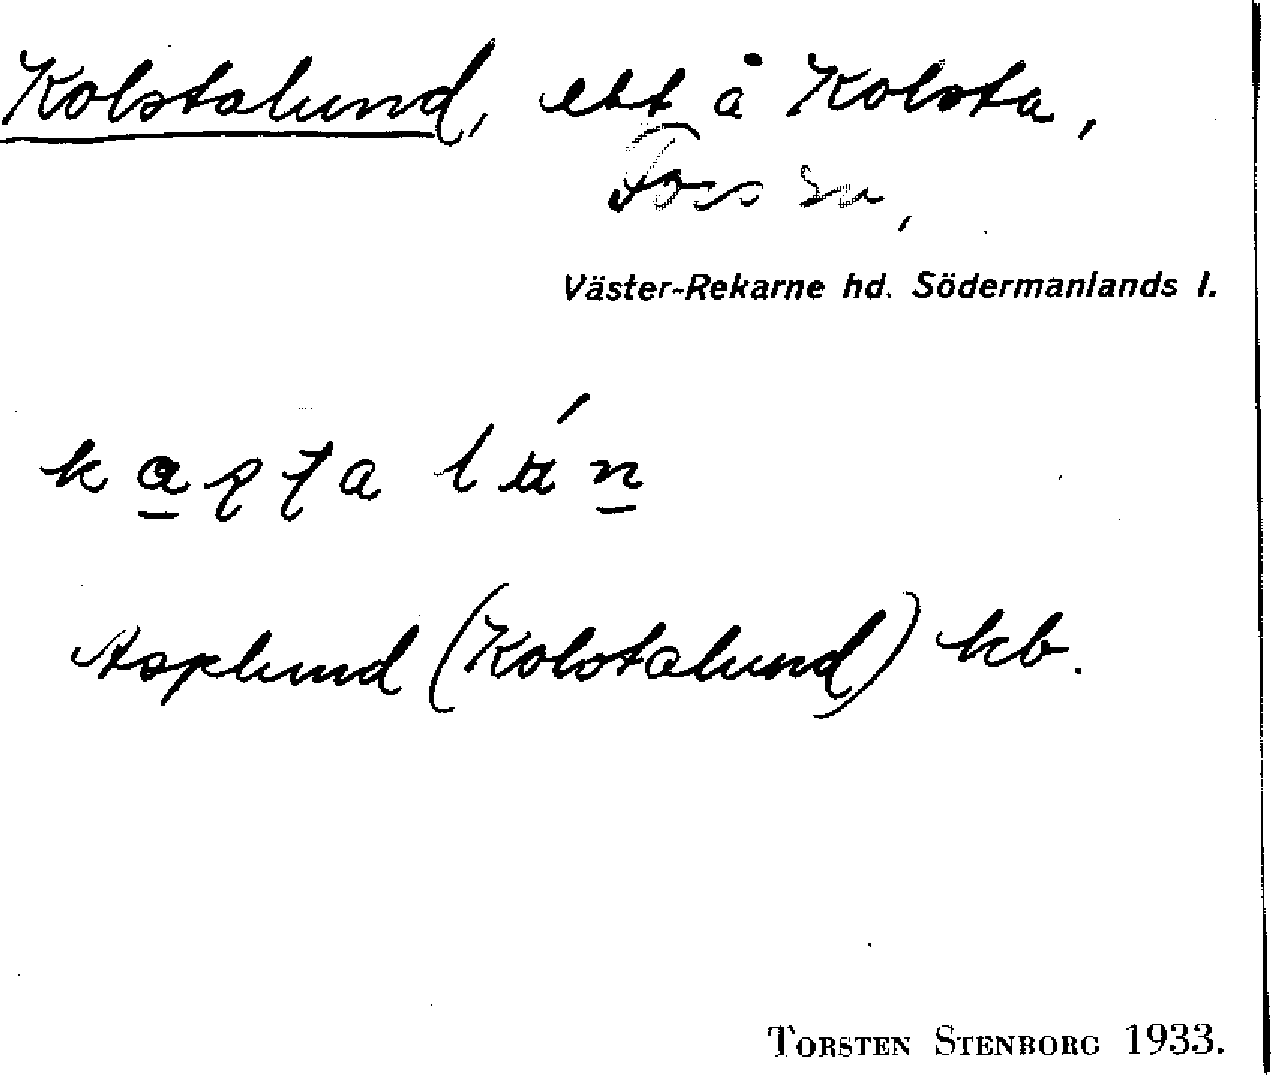 Kolstalund, ett å Kolsta,
Tors sn,
Väster-Rekarne hd. Södermanlands l.
Asplund (Kolstalund) kb.
TORSTEN STENBORG 1933.